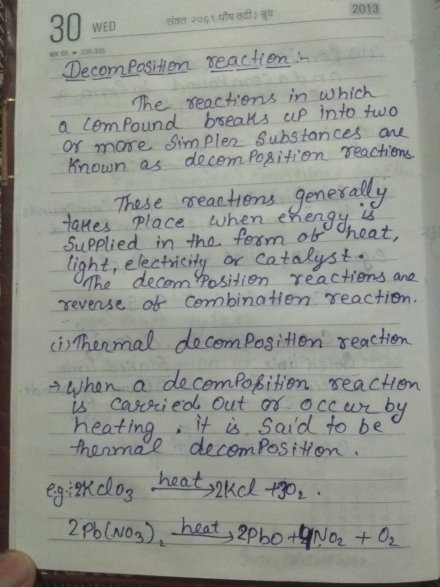 30 WED
संवत २०६९ पौष वदी ३ बुध
2013
WK 05 • 030-335
Decomposition reaction :-
The reactions in which
a compound breaks up into two
or more simpler substances are
known as decomposition reactions.
These reactions generally
takes place when energy is
supplied in the form of heat,
light, electricity or catalyst.
The decomposition reactions are
reverse of combination reaction.
(i) Thermal decomposition reaction
→ When a decomposition reaction
is carried out or occur by
heating, it is said to be
thermal decomposition.
e.g.: 2KClO3 heat→ 2KCl + 3O2.
2Pb(NO3)2 heat→ 2PbO + 4NO2 + O2